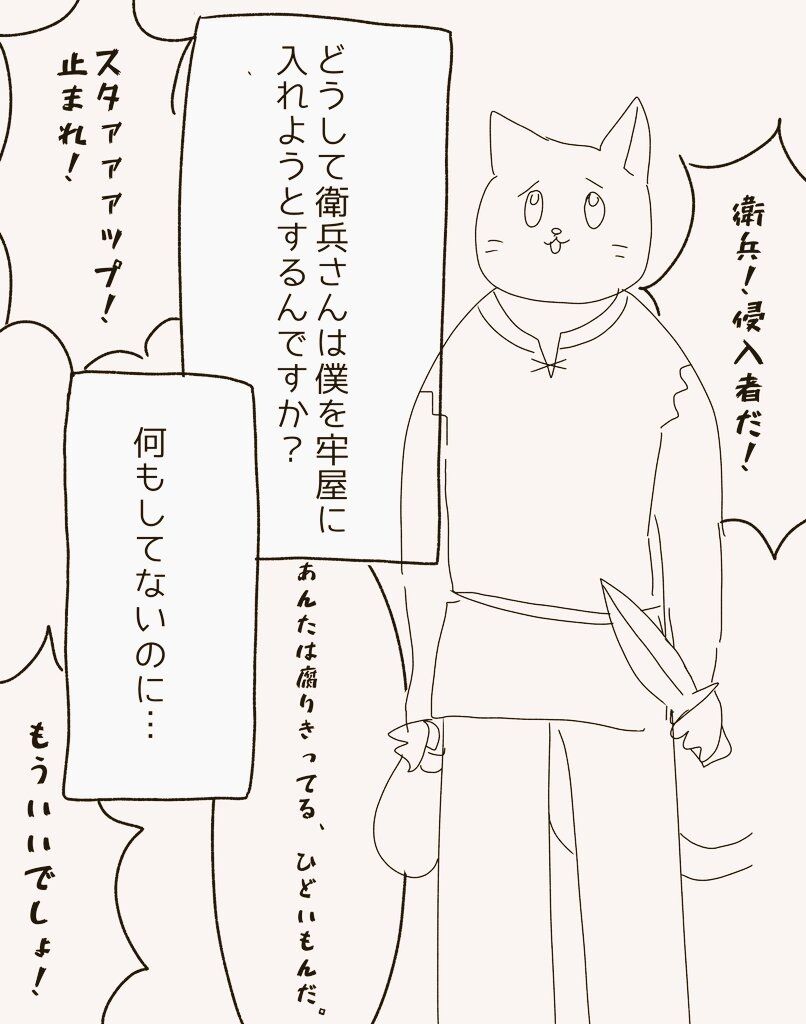 衛兵！侵入者だ！
どうして衛兵さんは僕を牢屋に
入れようとするんですか？
スタァァァップ！
止まれ！
何もしてないのに…
あんたは腐りきってる、ひどいもんだ。
もういいでしょ！